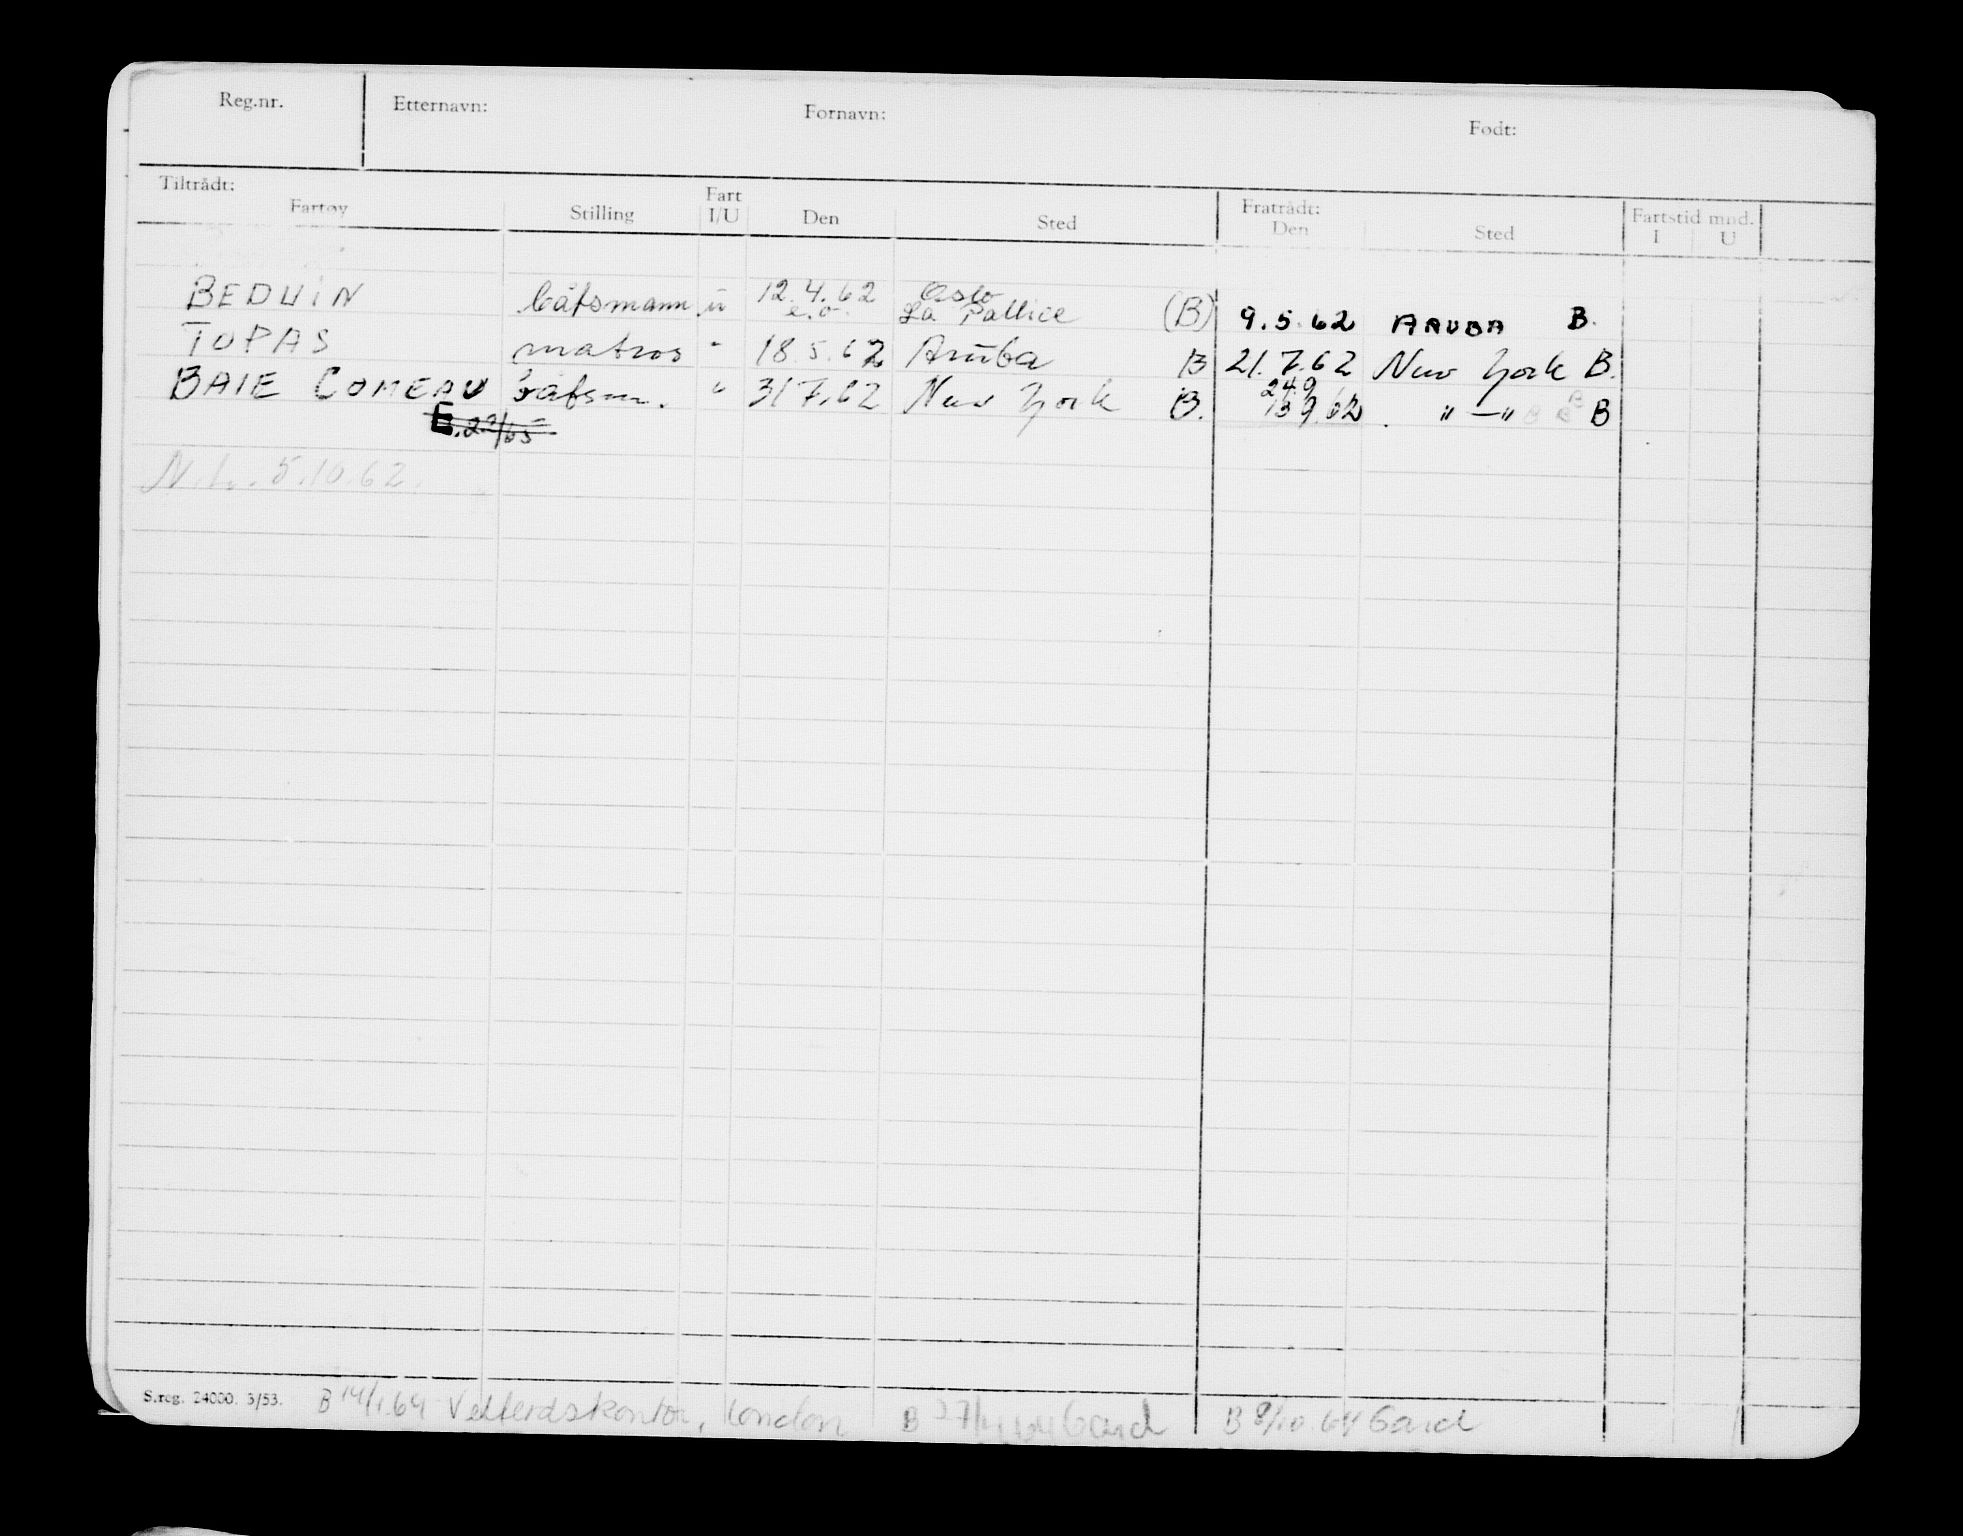 Reg.nr. Etternavn: Fornavn: Født:
Tiltrådt: Fratrådt:
Fartøy Stilling Fart I/U Den Sted Den Sted Fartstid mnd. I U
BEDUIN båtsmann u 12.4.62 Oslo
e.o. La Pallice (B) 9.5.62 ARUBA B.
TOPAS matros " 18.5.62 Aruba B 21.7.62 New York B.
24.9
BAIE COMEAU båtsm. " 31 7.62 New York B. 9.62 " — " B
E.
N.L. 5.10.62.
S.reg. 24000. 3/53. B 14/1.64 Velferdskontor, London B 27/ 64 Gard B 8/10.64 Gard